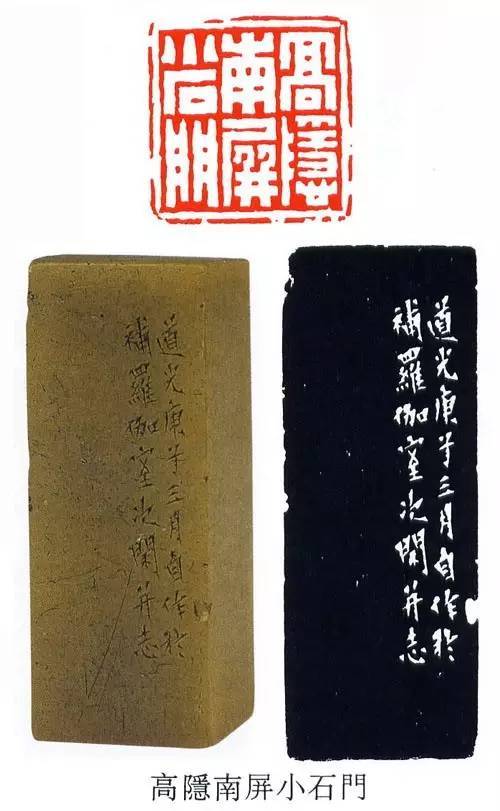 高隱
南屏
小石門
道光庚子三月自作於
補羅伽室次閑并志
道光庚子三月自作於
補羅伽室次閑并志
高隱南屏小石門